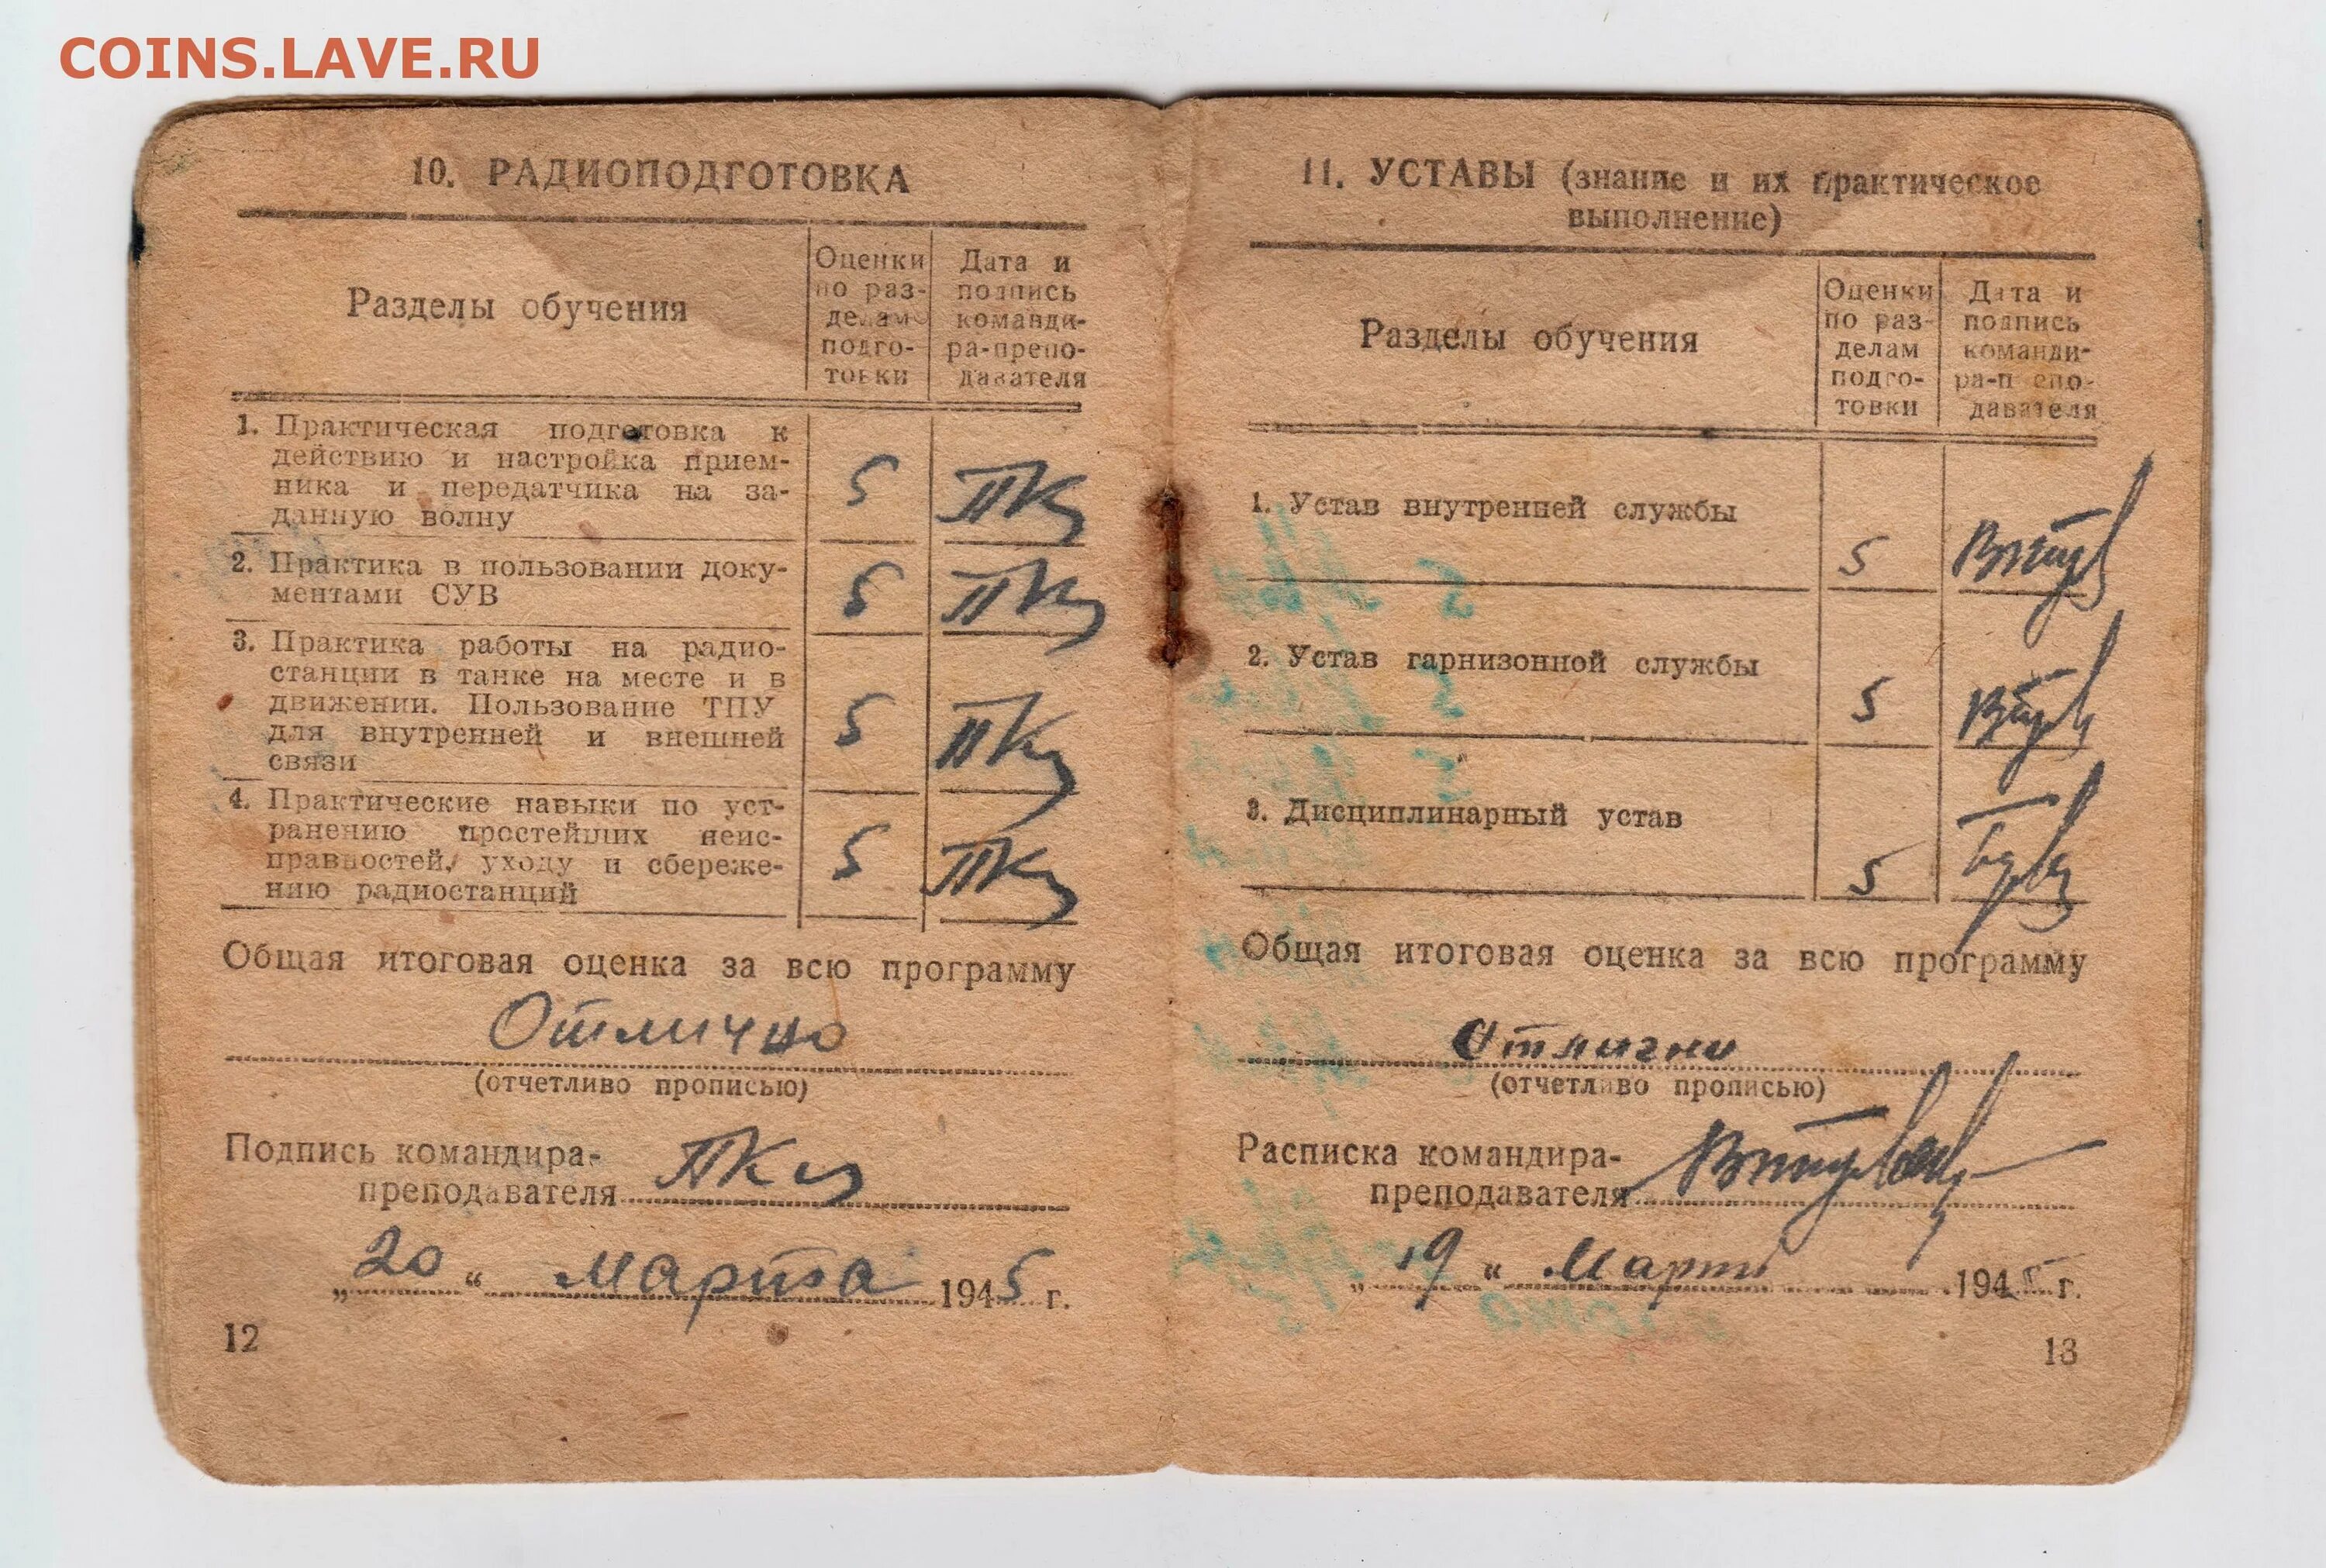 COINS.LAVE.RU
10. РАДИОПОДГОТОВКА
Разделы обучения
Оценки
по раз-
делам
подго-
товки
Дата и
подпись
команди-
ра-препо-
давателя
1. Практическая подготовка к
действию и настройка прием-
ника и передатчика на за-
данную волну
5
2. Практика в пользовании доку-
ментами СУВ
5
3. Практика работы на радио-
станции в танке на месте и в
движении. Пользование ТПУ
для внутренней и внешней
связи
5
4. Практические навыки по уст-
ранению простейших неис-
правностей, уходу и сбереже-
нию радиостанций
5
Общая итоговая оценка за всю программу
Отлично
(отчетливо прописью)
Подпись командира-
преподавателя
„20“ Марта 1945 г.
12
11. УСТАВЫ (знание и их практическое
выполнение)
Разделы обучения
Оценки
по раз-
делам
подго-
товки
Дата и
подпись
команди-
ра-п епо-
давателя
1. Устав внутренней службы
5
2. Устав гарнизонной службы
5
3. Дисциплинарный устав
5
Общая итоговая оценка за всю программу
Отлично
(отчетливо прописью)
Расписка командира-
преподавателя
„19“ Марта 1945 г.
13